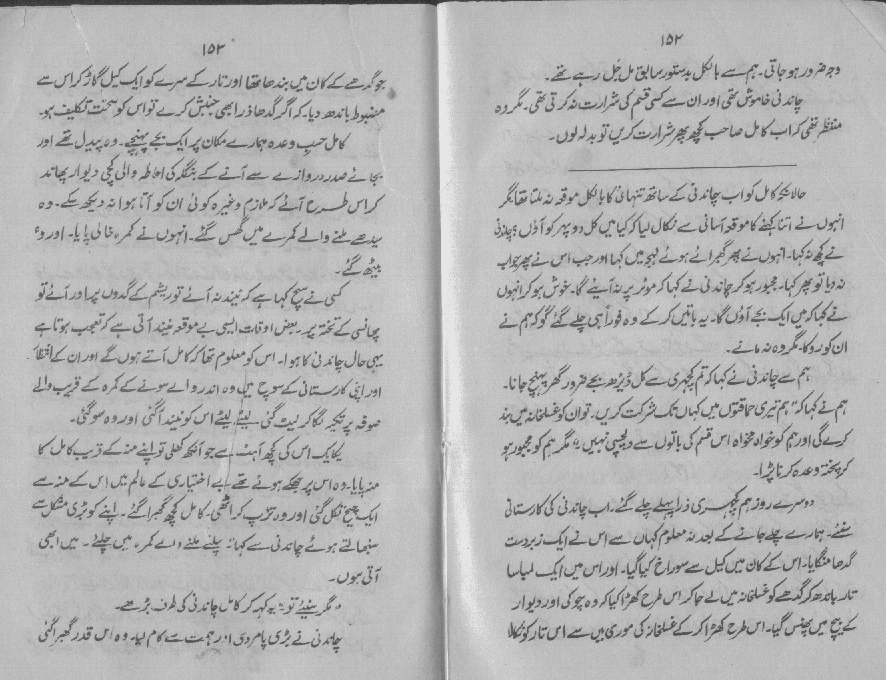 ۱۵۲
وجہ ضرور ہو جاتی۔ ہم سے بالکل بدستور سابق مل جُل رہے تھے۔
چاندنی خاموش تھی اور ان سے کسی قسم کی شرارت نہ کرتی تھی۔ مگر وہ
منتظر تھی کہ اب کامل صاحب کچھ پھر شرارت کریں تو بدلہ لوں۔
حالانکہ کامل کو اب چاندنی کے ساتھ تنہائی کا بالکل موقعہ نہ ملتا تھا مگر
انہوں نے اتنا کہنے کا موقعہ آسانی سے نکال لیا کہ کیا میں کل دوپہر کو آؤں؟ چاندنی
نے کچھ نہ کہا۔ انہوں نے پھر گھبرائے ہوئے لہجہ میں کہا اور جب اس نے پھر جواب
نہ دیا تو پھر کہا۔ مجبور ہو کر چاندنی نے کہا کہ موٹر پر نہ آیئے گا۔ خوش ہو کر انہوں
نے کہا کہ میں ایک بجے آؤں گا۔ یہ باتیں کر کے وہ فوراً ہی چلے گئے گو کہ ہم نے
ان کو روکا۔ مگر وہ نہ مانے۔
ہم سے چاندنی نے کہا کہ تم کچہری سے کل ڈیڑھ بجے ضرور گھر پہنچ جانا۔
ہم نے کہا کہ "ہم تیری حماقتوں میں کہاں تک شرکت کریں۔ تو ان کو غسلخانہ میں بند
کرے گی اور ہم کو خواہ مخواہ اس قسم کی باتوں سے دلچسپی نہیں"۔ مگر ہم کو مجبور ہو
کر پختہ وعدہ کرنا پڑا۔
دوسرے روز ہم کچہری ذرا پہلے چلے گئے۔ اب چاندنی کی کارستانی
سنئے۔ ہمارے چلے جانے کے بعد نہ معلوم کہاں سے اس نے ایک زبردست
گدھا منگایا۔ اس کے کان میں کیل سے سوراخ کیا گیا۔ اور اس میں ایک لمبا سا
تار باندھ کر گدھے کو غسلخانہ میں لے جا کر اس طرح کھڑا کیا کہ وہ چوکی اور دیوار
کے بیچ میں پھنس گیا۔ اس طرح کھڑا کر کے غسلخانہ کی موری میں سے اس تار کو نکالا
۱۵۳
جو گدھے کے کان میں بندھا تھا اور تار کے سرے کو ایک کیل گاڑ کر اس سے
مضبوط باندھ دیا۔ کہ اگر گدھا ذرا بھی جنبش کرے تو اس کو سخت تکلیف ہو۔
کامل حسب وعدہ ہمارے مکان پر ایک بجے پہنچے۔ وہ پیدل تھے اور
بجائے صدر دروازے سے آنے کے بنگلہ کی احاطہ والی کچی دیوار پھاند
کر اس طرح آئے کہ ملازم وغیرہ کوئی ان کو آتا ہوا نہ دیکھ سکے۔ وہ
سیدھے ملنے والے کمرے میں گھس گئے۔ انہوں نے کمرہ خالی پایا۔ اور وہ
بیٹھ گئے۔
کسی نے سچ کہا ہے کہ نیند نہ آئے تو ریشم کے گدوں پر اور آئے تو
پھانسی کے تختہ پر بعض اوقات ایسی بے موقعہ نیند آتی ہے کہ تعجب ہوتا ہے
یہی حال چاندنی کا ہوا۔ اس کو معلوم تھا کہ کامل آتے ہوں گے اور ان کے انتظار
اور اپنی کارستانی کے سوچ میں وہ اندر والے سونے کے کمرہ کے قریب والے
صوفہ پر تکیہ لگا کر لیٹ گئی۔ لیٹے لیٹے اس کو نیند آ گئی اور وہ سو گئی۔
یکایک اس کی کچھ آہٹ سے جو آنکھ کھلی تو اپنے منہ کے قریب کامل کا
منہ پایا۔ وہ اس پر جھکے ہوئے تھے۔ بے اختیاری کے عالم میں اس کے منہ سے
ایک چیخ نکل گئی اور وہ تڑپ کر اٹھی۔ کامل کچھ گھبرا گئے۔ اپنے کو بڑی مشکل سے
سنبھالتے ہوئے چاندنی سے کہا "چلئے ملنے والے کمرہ میں چلئے۔ میں ابھی
آتی ہوں۔
"مگر سنیئے تو"۔ یہ کہہ کر کامل چاندنی کی طرف بڑھے۔
چاندنی نے بڑی پامردی اور ہمت سے کام لیا۔ وہ اس قدر گھبرا گئی